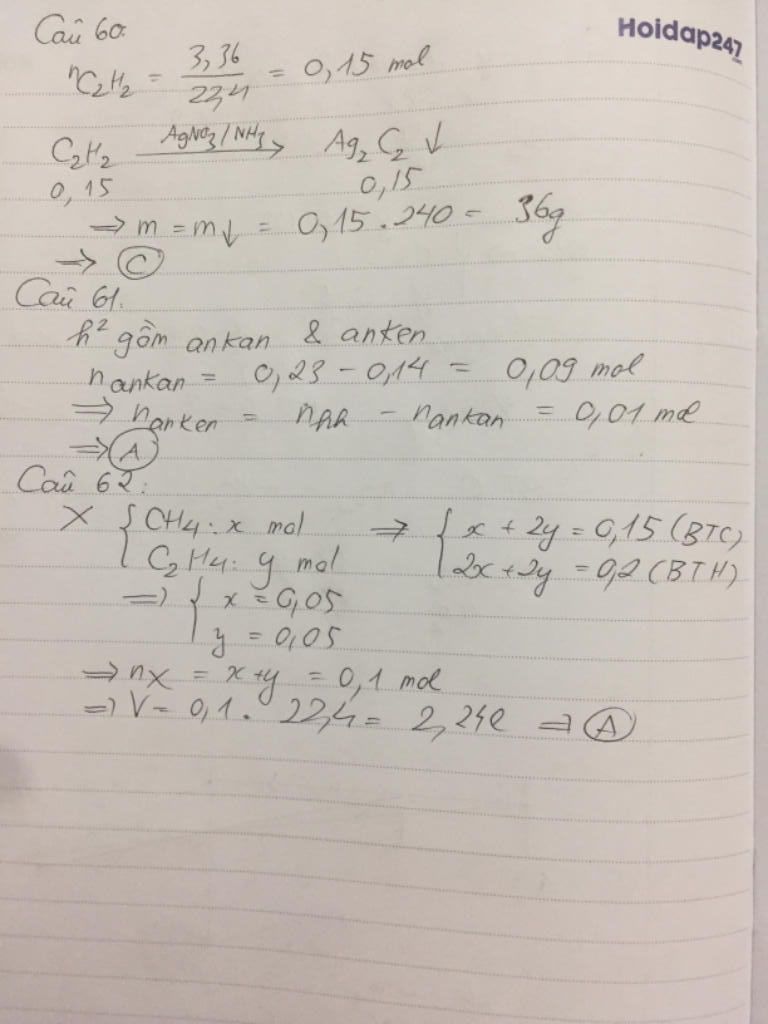 Câu 60:
Hoidap247
.com
nC2H2 = 3,36/22,4 = 0,15 mol
C2H2 AgNO3/NH3→ Ag2C2↓
0,15 0,15
⇒ m = m↓ = 0,15.240 = 36g
⇒ C
Câu 61.
h² gồm ankan & anken
nankan = 0,23 - 0,14 = 0,09 mol
⇒ nanken = nhh - nankan = 0,01 mol
⇒ A
Câu 62:
X { CH4: x mol ⇒ { x + 2y = 0,15 (BTC)
C2H4: y mol 2x + 2y = 0,2 (BTH)
⇒ { x = 0,05
y = 0,05
⇒ nX = x+y = 0,1 mol
⇒ V = 0,1. 22,4 = 2,24l ⇒ A